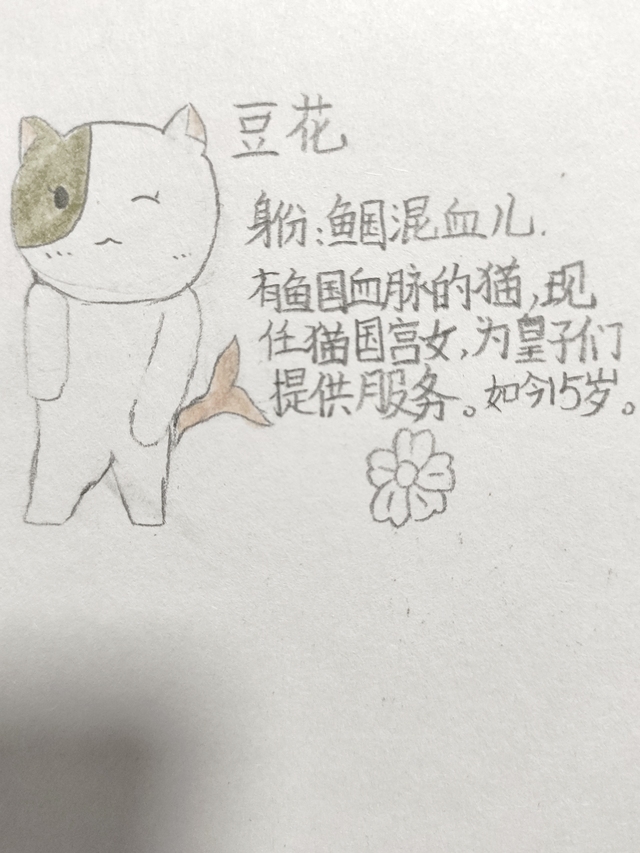 豆花
身份:鱼国混血儿.
有鱼国血脉的猫,现
任猫国宫女,为皇子们
提供服务。如今15岁。